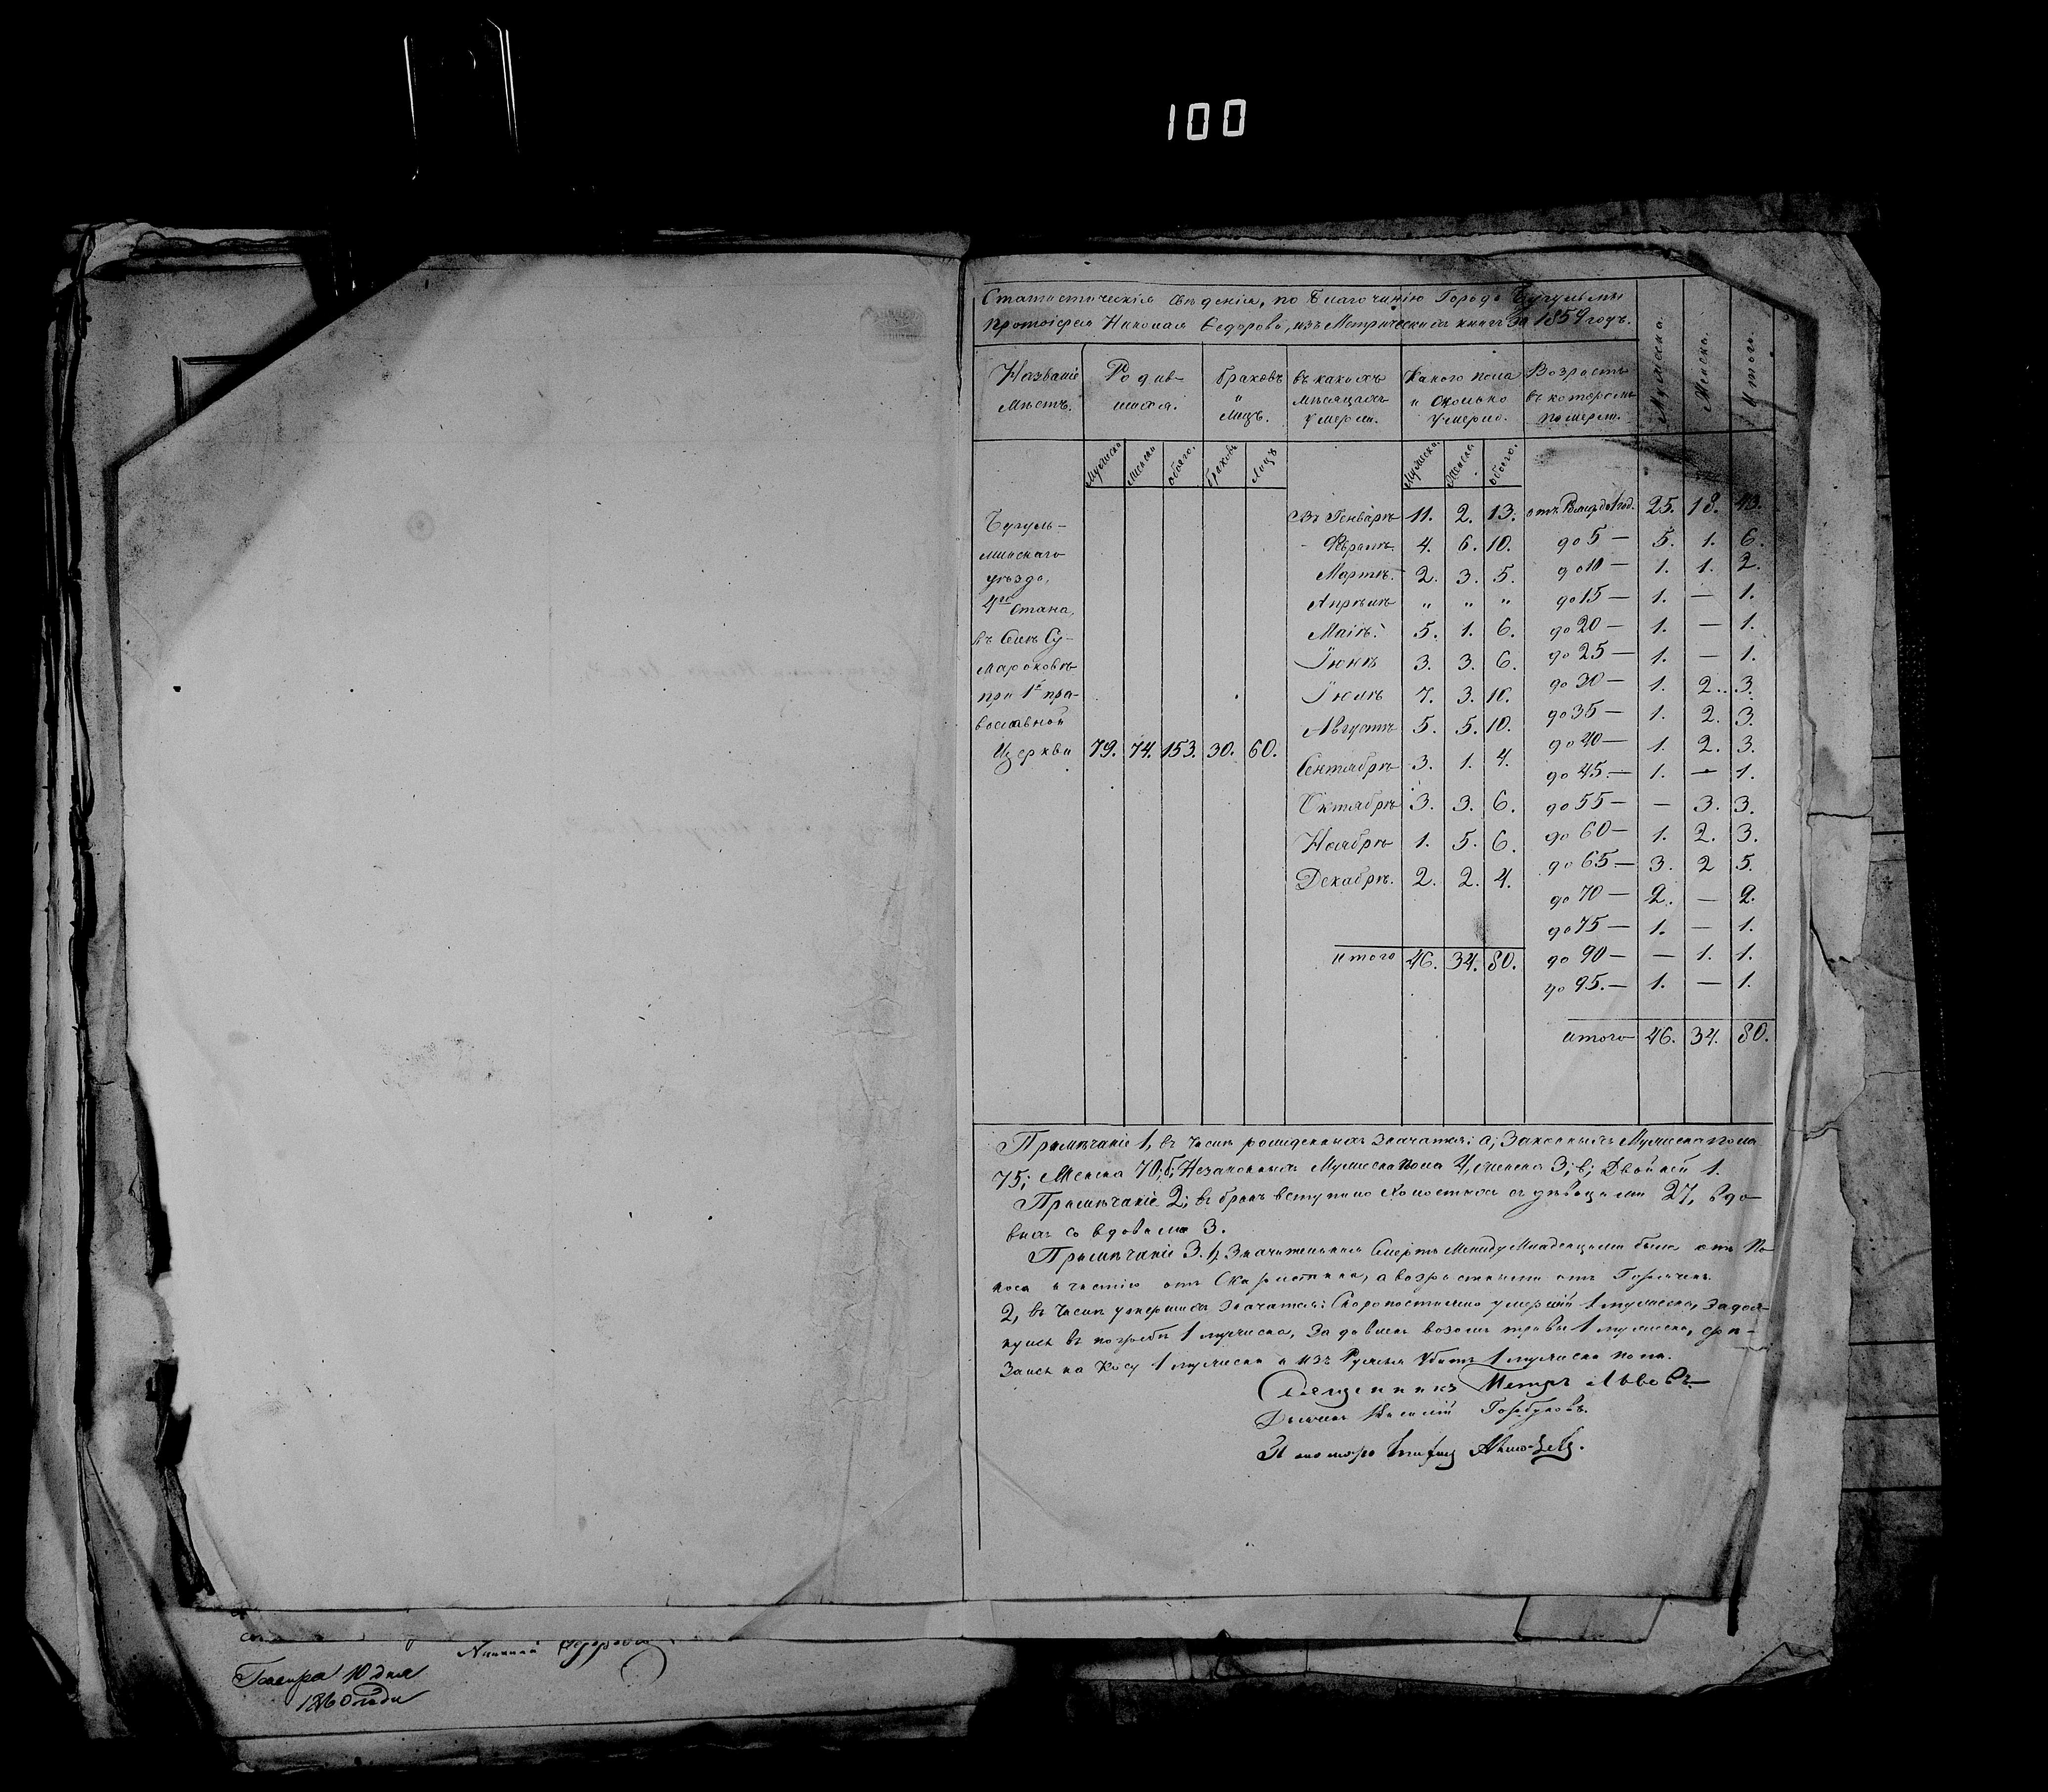 100
Статистическія свѣденія, по Благочинію Города Бугульмы
Протоіерея Николая Федорова, изъ Метрическихъ книгъ за 1859 годъ.
Названіе мѣстъ.
Родив-
шихся.
Браковъ
и
Лицъ.
въ какихъ
мѣсяцахъ
умерли.
Какого пола
и сколько
умерло.
Возрастъ
въ которомъ
померли.
Мужеска.
Женска.
Итого.
Мужеска
Женска
Обоего.
Браковъ
Лицъ
Мужеска.
Женска.
Обоего.
Бугуль-
минскаго
уѣзда,
4го Стана,
въ Селѣ Су-
мароковѣ
при 1й пра-
вославной
Церкви 79. 74. 153. 30. 60.
Въ Генварѣ 11. 2. 13.
Февралѣ. 4. 6. 10.
Мартѣ. 2. 3. 5.
Апрѣлѣ " " "
Маіѣ. 5. 1. 6.
Іюнѣ 3. 3. 6.
Іюлѣ 7. 3. 10.
Августѣ 5. 5. 10.
Сентябрѣ 3. 1. 4.
Октябрѣ 3. 3. 6.
Ноябрѣ 1. 5. 6.
Декабрѣ. 2. 2. 4.
итого 46. 34. 80.
отъ Рожд. до 1 год. 25. 18. 43.
до 5 — 5. 1. 6.
до 10 — 1. 1. 2.
до 15 — 1. — 1.
до 20 — 1. — 1.
до 25 — 1. — 1.
до 30 — 1. 2. 3.
до 35 — 1. 2. 3.
до 40 — 1. 2. 3.
до 45. — 1. — 1.
до 55 — — 3. 3.
до 60 — 1. 2. 3.
до 65 — 3. 2 5.
до 70 — 2. — 2.
до 75 — 1. — 1.
до 90 — — 1. 1.
до 95. — 1. — 1.
итого 46. 34. 80.
Примѣчаніе 1, въ числѣ рожденныхъ значатся: а; Законныхъ Мужеска пола
75; Женска 70, б; Незаконныхъ Мужеска пола 4, женска 3; в; Двойней 1.
Примѣчаніе 2; въ бракъ вступило холостыхъ съ дѣвицами 27, вдо-
выхъ со вдовами 3.
Примѣчаніе 3. 1, Значительная Смерть между Младенцами была отъ По-
носа и частію отъ Скарлатина, а возрастными отъ Горячки.
2, въ числѣ умершихъ значатся: Скоропостижно умершій 1 мужеска, задох-
нулся въ погребѣ 1 мужеска, задавленъ возомъ травы 1 мужеска,
на косу 1 мужеска и изъ Ружья убитъ 1 мужеска пола.
Священникъ Петръ Львовъ
Дьяконъ Василій Горбуновъ.
Пономарь
Николай Федоровъ
Генваря 10 дня
1860 года